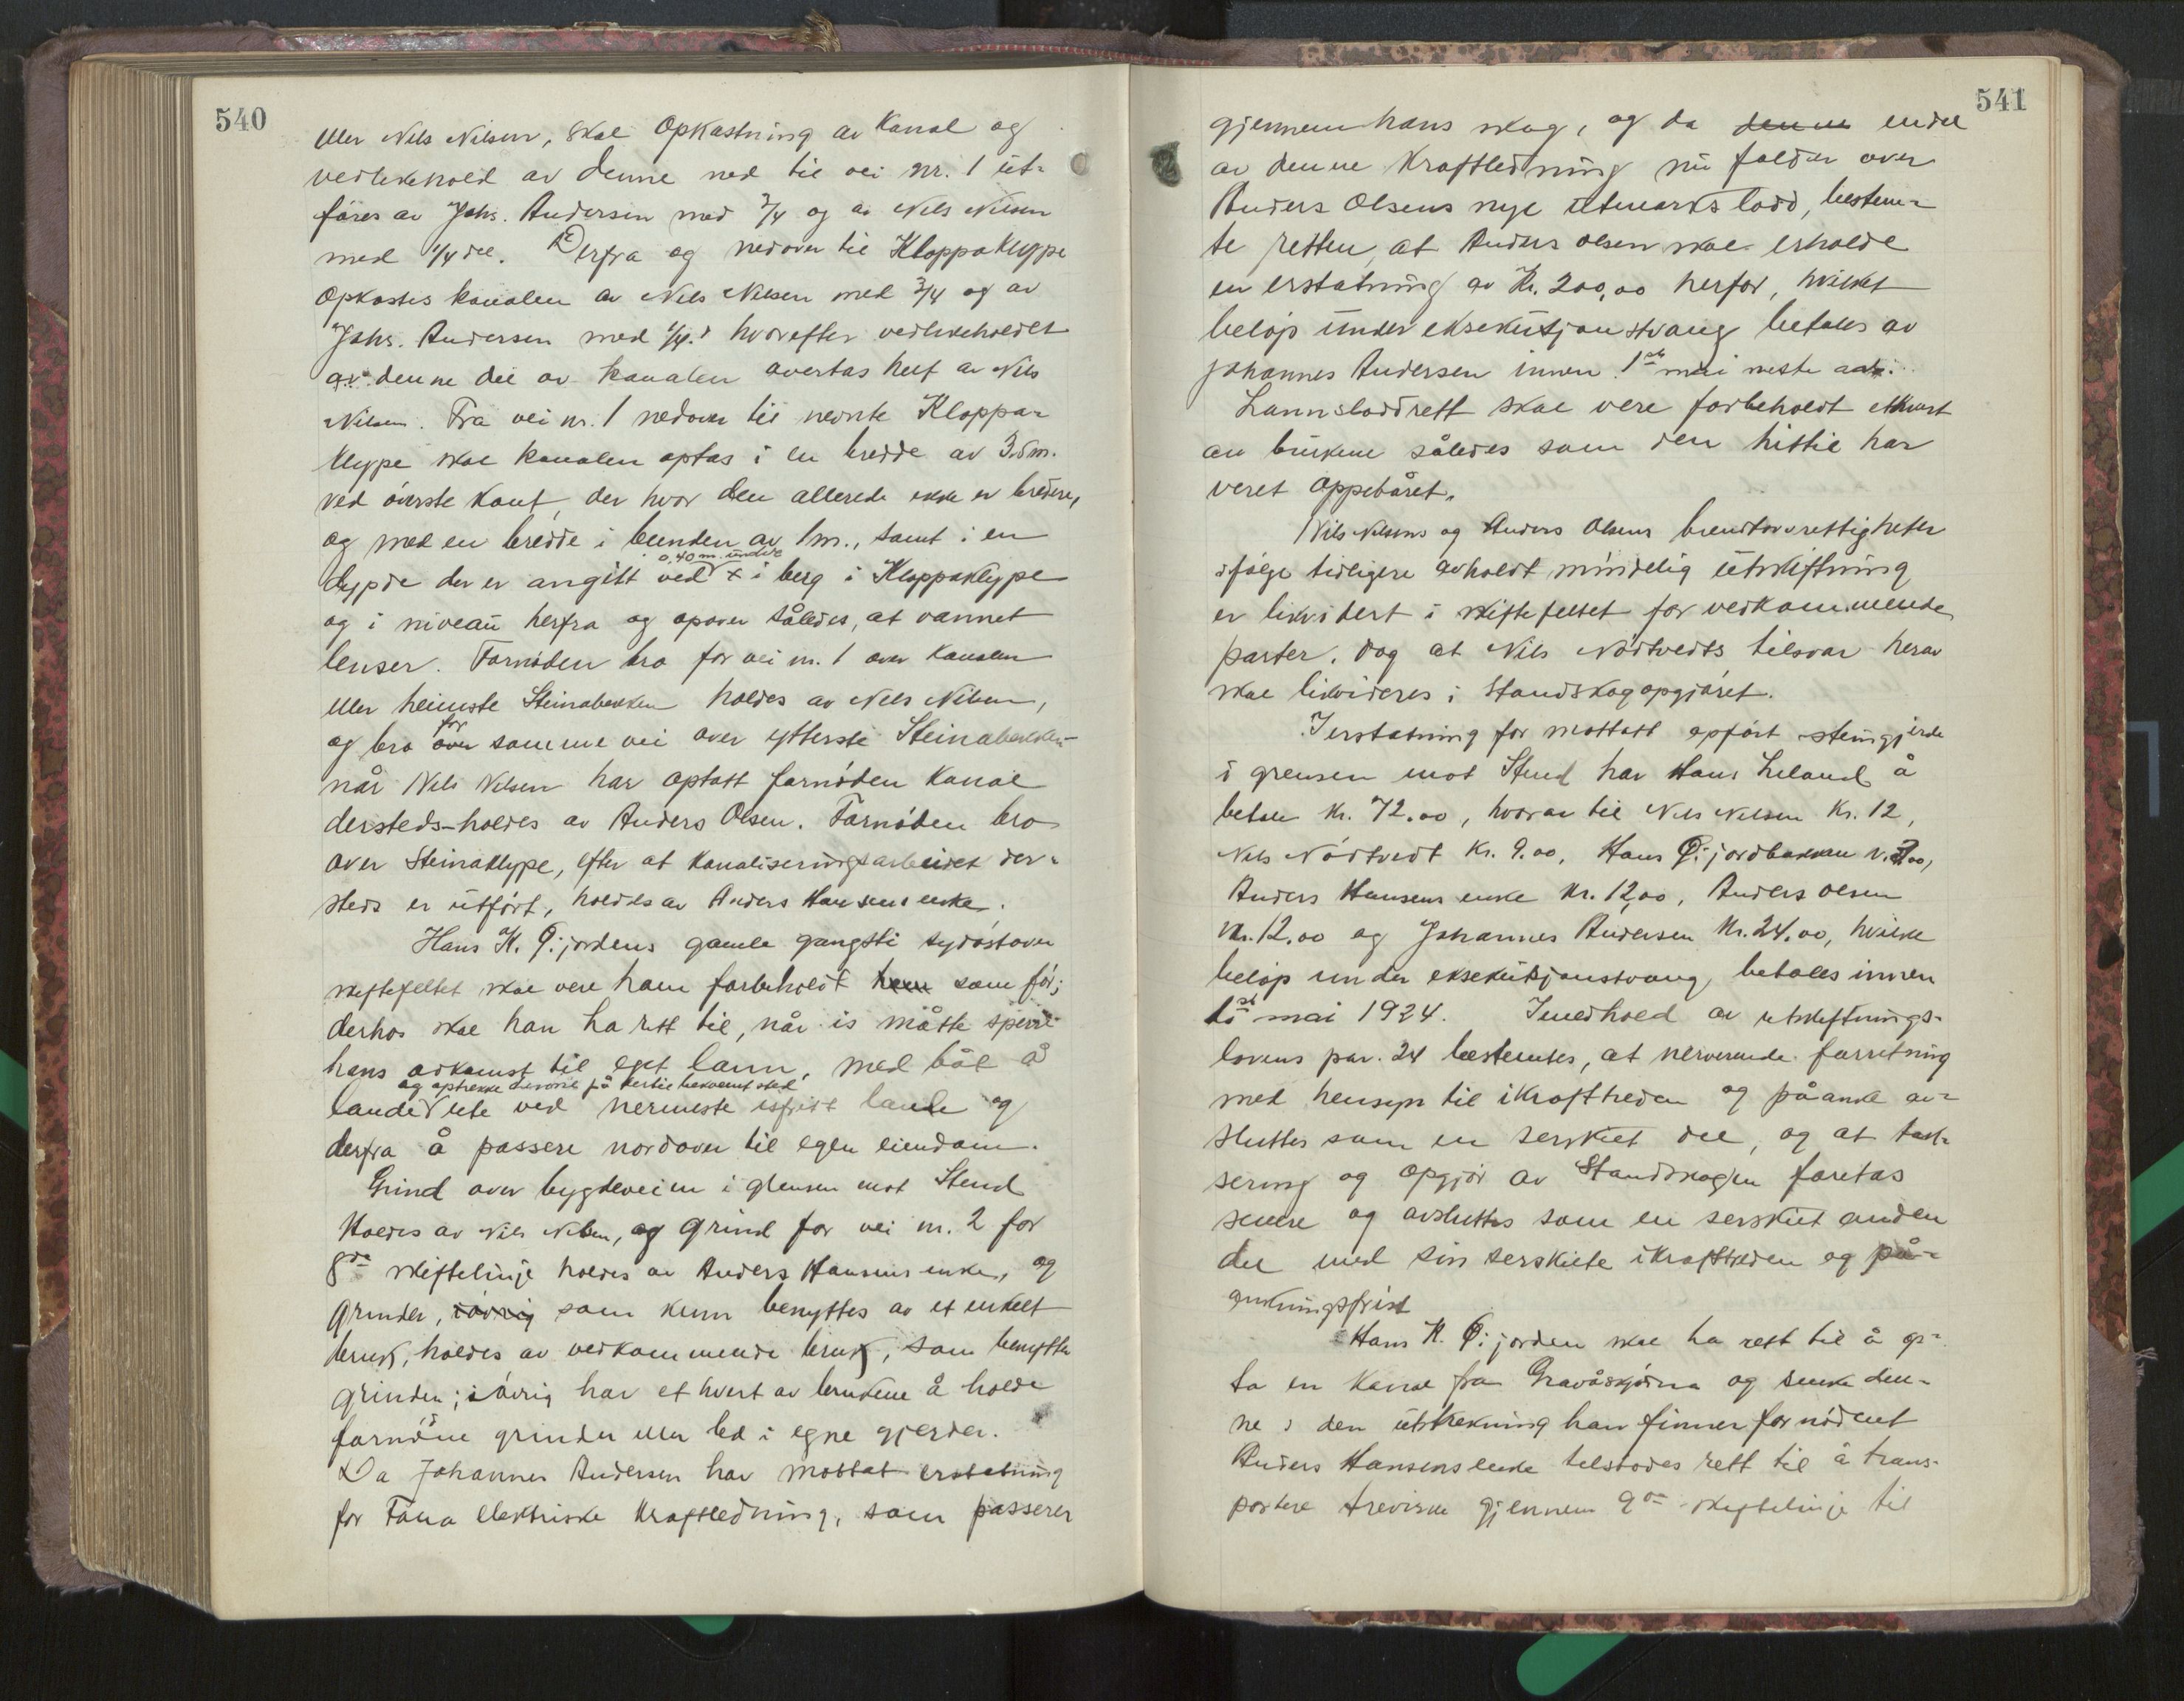 540
eller Nils Nilsen, skal opkastning av kanal og
vedlikehold av denne ned til vei nr. 1 ut-
føres av Johs. Andersen med 3/4 og av Nils Nilsen
med 1/4 del. Derfra og nedover til Kloppaklype
opkastes kanalen av Nils Nilsen med 3/4 og av
Johs. Andersen med 1/4. hvorefter vedlikeholdet
av denne del av kanalen overtas helt av Nils
Nilsen. Fra vei nr. 1 nedover til nevnte Kloppa-
klype skal kanalen optas i en bredde av 3.5m.
ved øverste kant, der hvor den allerede ikke er bredere,
og med en bredde i bunden av 1m., samt i en
0,40 m. under
dypde der er angitt ved x i berg i Kloppaklype
og i niveau herfra og opover således, at vannet
lenser. Fornøden bro for vei nr. 1 over kanalen
eller heimste Steinabekken holdes av Nils Nilsen,
for
og bro over samme vei over ytterste Steinabekken
når Nils Nilsen har optatt fornøden kanal
dersteds-holdes av Anders Olsen. Fornøden bro
over Steinaklype, efter at kanaliseringsarbeidet der-
steds er utført, holdes av Anders Hansens enke.
Hans K. Ø:jordens gamle gangsti sydøstover
skiftefeltet skal vere ham forbeholdt ham som før;
derhos skal han ha rett til, når is måtte sperre
hans adkomst til eget lann, med båt å
og optrekke denne på dertil bekvemt sted
lande ute ved nermeste isfritt lande og
derfra å passere nordover til egen eiendom.
Grind over bygdeveien i grensen mot Stend
holdes av Nils Nilsen, og grind for vei nr. 2 for
8de skiftelinje holdes av Anders Hansens enke, og
grinder, iøvrig som kun benyttes av et enkelt
bruk, holdes av vedkommende bruk, som benytter
grinden; iøvrig har et hvert av brukene å holde
fornødne grinder eller led i egne gjerder.
Da Johannes Andersen har mottat erstatning
for Fana elektriske kraftledning, som passerer
541
gjennem hans skog, og da denne endel
av denne kraftledning nu falder over
Anders Olsens nye utmarkslodd, bestem-
te retten, at Anders Olsen skal erholde
en erstatning av Kr. 200,00 herfor, hvilket
beløp under eksekutjonstvang betales av
Johannes Andersen innen 1ste mai neste aar.
Lannsloddrett skal vere forbeholdt ethvert
av brukene således som den hittil har
veret oppebåret.
Nils Nilsens og Anders Olsens brendtorvrettigheter
ifølge tidligere avholdt mindelig utskiftning
er likvidert i skiftefeltet for vedkommende
parter, dog at Nils Nøstvedts tilsvar herav
skal likvideres i Standskogopgjøret.
I erstatning for mottatt opført steingjerde
i grensen mot Stend har Hans Leland å
betale kr. 72.00, hvorav til Nils Nilsen Kr. 12,
Nils Nøstvedt Kr. 9.00, Hans Ø:jordbakken
Anders Hansens enke Kr. 12,00, Anders Olsen
Kr. 12.00 og Johannes Andersen Kr. 24.00, hvilke
beløp under eksekutjonstvang, betales innen
1ste mai 1924. I medhold av utskiftnings-
lovens par. 24 bestemtes, at nerverende forretning
med hensyn til ikrafttreden og påanke av-
sluttes som en serskilt del, og at tak-
sering og opgjør av Standskogen foretas
senere og avsluttes som en serskilt anden
del med sin serskilte ikrafttreden og på-
ankningsfrist
Hans K. Ø:jorden skal ha rett til å op-
ta en kanal fra Gravåskjørna og senke den-
ne i den utstrekning han finner fornødent
Anders Hansens enke tilstodes rett til å trans-
portere trevirke gjennem 9de skiftelinje til